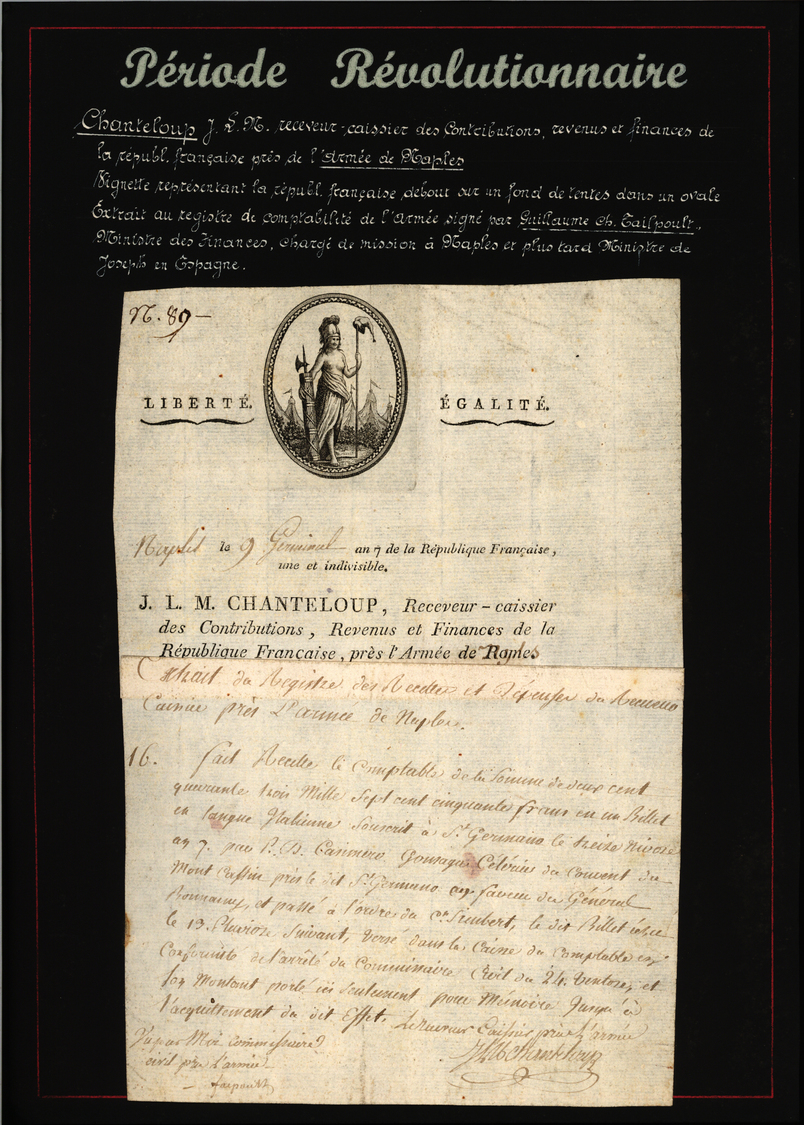 Période Révolutionnaire
Chanteloup J. L. M. receveur-caissier des Contributions, revenus et finances de
la républ. française près de l'Armée de Naples
Vignette représentant la républ. française debout sur un fond de tentes dans un ovale
Extrait au registre de comptabilité de l'armée signé par Guillaume Ch. Faipoult,
Ministre des Finances, chargé de mission à Naples et plus tard Ministre de
Joseph en Espagne.
N. 89-
LIBERTÉ. ÉGALITÉ.
Naples le 9 Germinal an 7 de la République Française,
une et indivisible.
J. L. M. CHANTELOUP, Receveur-caissier
des Contributions, Revenus et Finances de la
République Française, près l'Armée de Naples
Extrait du Registre des Recettes et Dépenses du Receveur
Caissier près l'armée de Naples.
16. fait Recette le Comptable de la Somme de deux cent
quarante trois Mille Sept cent cinquante francs en un Billet
en langue Italienne Souscrit à St. Germano le treize Nivose
an 7. par P. D. Casimero Gonsague Celérier du Couvent du
Mont Cassin près le dit St. Germano en faveur du Général
et passé à l'ordre du le dit Billet
le 13. Pluviose Suivant, versé dans la Caisse du Comptable en
Conformité de l'arrêté du Commissaire Civil du 24. Ventose, et
son Montant porté ici seulement pour Mémoire Jusqu'à
l'acquittement du dit Effet. Le Receveur Caissier près l'armée
Vu par Moi Commissaire JLMChanteloup
civil près l'armée
faipoult